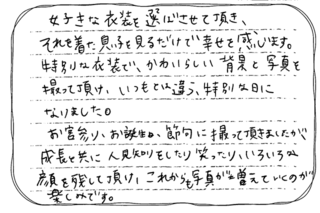 好きな衣装を選ばさせて頂き、
それを着た息子を見るだけで幸せを感じます。
特別な衣装で、かわいらしい背景と写真を
撮って頂け、いつもとは違う、特別な日に
なりました。
お宮参り、お誕生日、節句に撮って頂きましたが
成長と共に人見知りをしたり笑ったり、いろいろな
顔を残して頂け、これからも写真が増えていくのが
楽しみです。